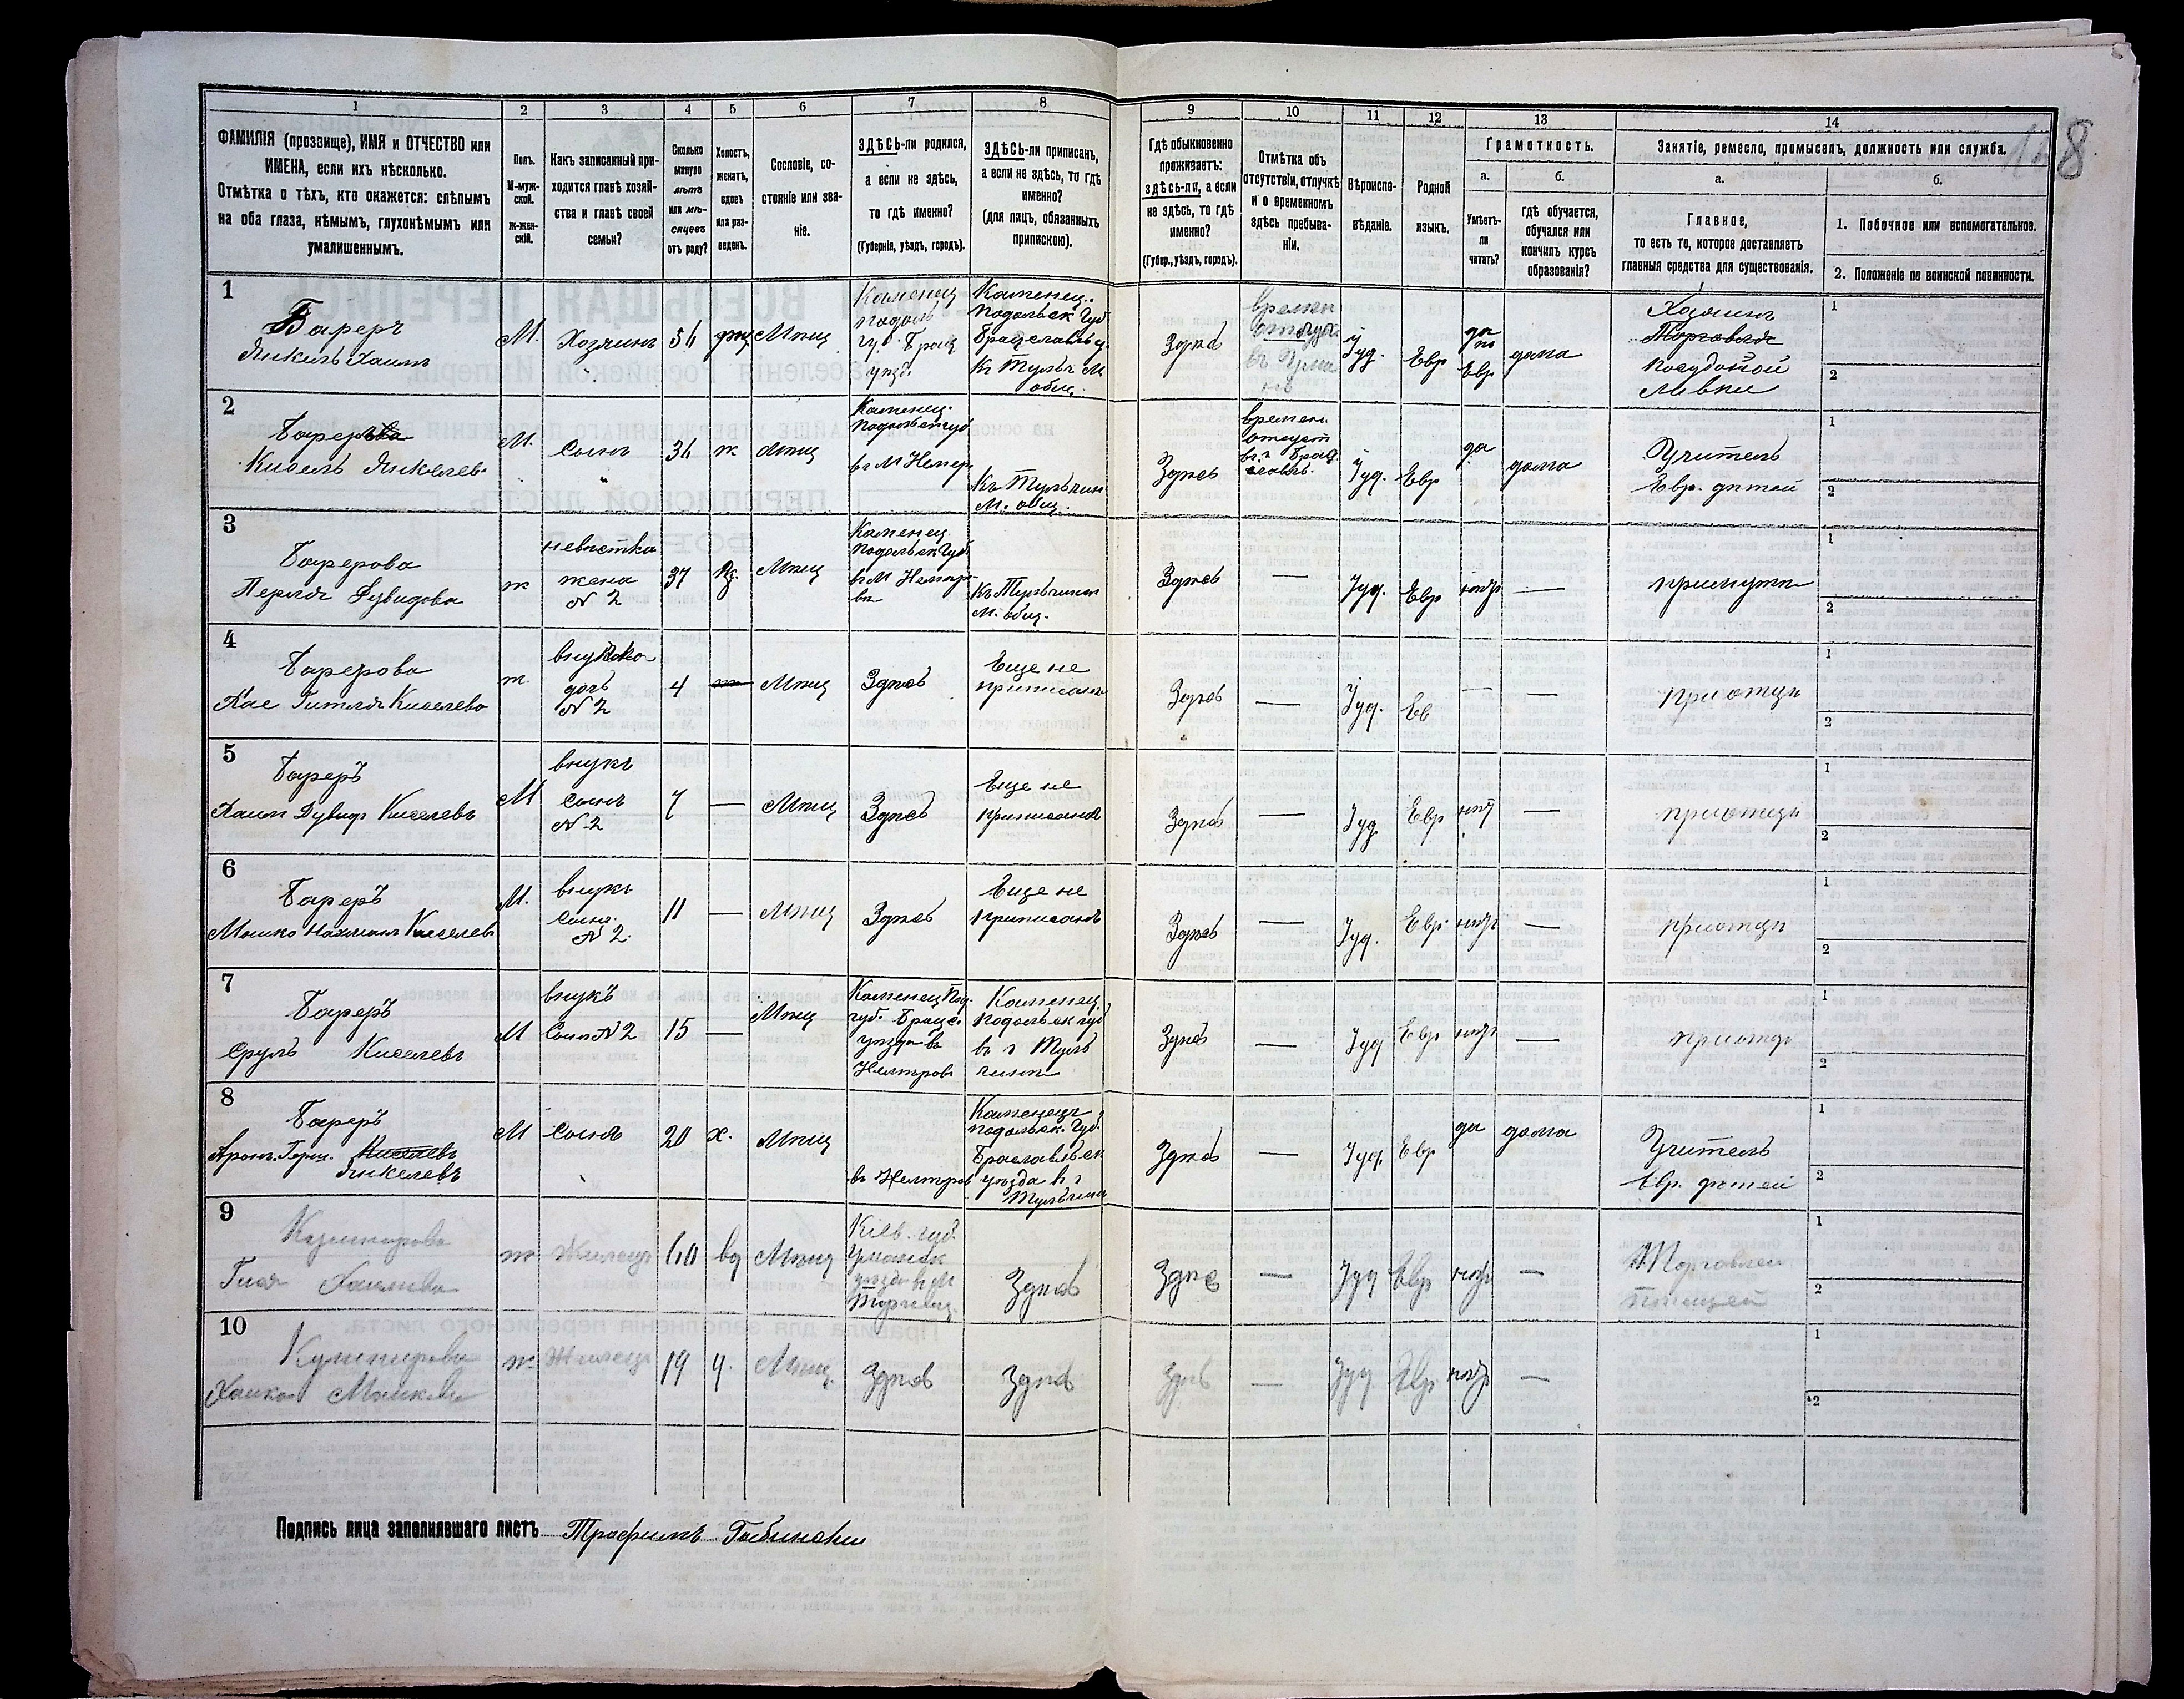 1
2
3
4
5
6
7
8
9
10
11
12
13
14
ФАМИЛІЯ (прозвище), ИМЯ и ОТЧЕСТВО или
ИМЕНА, если ихъ нѣсколько.
Отмѣтка о тѣхъ, кто окажется: слѣпымъ
на оба глаза, нѣмымъ, глухонѣмымъ или
умалишеннымъ.
Полъ.
М-муж-
ской.
Ж-жен-
скій.
Какъ записанный при-
ходится главѣ хозяй-
ства и главѣ своей
семьи?
Сколько
минуло
лѣтъ
или мѣ-
сяцевъ
отъ роду?
Холостъ,
женатъ,
вдовъ
или раз-
веденъ.
Сословіе, со-
стояніе или зва-
ніе.
ЗДѢСЬ-ли родился,
а если не здѣсь,
то гдѣ именно?
(Губернія, уѣздъ, городъ).
ЗДѢСЬ-ли приписанъ,
а если не здѣсь, то гдѣ
именно?
(для лицъ, обязанныхъ
припискою).
Гдѣ обыкновенно
проживаетъ:
ЗДѢСЬ-ли, а если
не здѣсь, то гдѣ
именно?
(Губер., уѣздъ, городъ).
Отмѣтка объ
отсутствіи, отлучкѣ
и о временномъ
здѣсь пребыва-
ніи.
Вѣроиспо-
вѣданіе.
Родной
языкъ.
Грамотность.
а.
Умѣетъ-
ли
читать?
б.
гдѣ обучается,
обучался или
кончилъ курсъ
образованія?
Занятіе, ремесло, промыселъ, должность или служба.
а.
Главное,
то есть то, которое доставляетъ
главныя средства для существованія.
б.
1. Побочное или вспомогательное.
2. Положеніе по воинской повинности.
1
Бареръ
Янкель Хаимъ
М.
Хозяинъ
56
Мѣщ
Каменец
Подоль
гу. Брац
уѣзд.
Каменец.
Подольск Губ.
Брацславъ у.
Къ Тульч М
общ.
Здѣсь
времен
Іуд.
Евр
да
по
Евр
дома
Хозяинъ
Торговля
посудной
лавки
1
2
2
Бареръ
Кисель Янкелев.
М.
Сынъ
36
ж
Мѣщ
Каменец.
Подольск губ
въ М Немир
Къ Тульчин
М. общ.
Здѣсь
времен.
отсут
въ г Брац
славъ.
Іуд.
Евр
да
дома
Учитель
Евр. дѣтей
1
2
3
Барерова
Перля Дувидова
ж
невѣстка
жена
№ 2
37
Мѣщ
Каменец
Подольск Губ.
въ М Немир-
въ
Къ Тульчинск
М. общ.
Здѣсь
—
Іуд.
Евр
нѣтъ
—
при мужѣ
1
2
4
Барерова
Хае Гитля Киселева
ж.
внучка
дочь
№ 2
4
Мѣщ
Здѣсь
Еще не
приписанъ
Здѣсь
—
Іуд.
Ев
—
—
при отцѣ
1
2
5
Бареръ
Хаим Дувидъ Киселевъ
М
внукъ
Сынъ
№ 2
7
—
Мѣщ
Здѣсь
Еще не
приписанъ
Здѣсь
—
Іуд
Евр
нѣт
—
при отцѣ
1
2
6
Бареръ
Мошко Нахманъ Киселев
М.
внукъ
Сынъ.
№ 2.
11
—
Мѣщ
Здѣсь
Еще не
приписанъ
Здѣсь
—
Іуд.
Евр
нѣтъ
—
при отцѣ
1
2
7
Бареръ
Сруль Киселевъ
М
внукъ
Сынъ № 2
15
—
Мѣщ
Каменец Под.
губ. Брацс.
уѣзда въ
Немировъ
Каменец.
Подольск губ
въ г Туль
чинъ
Здѣсь
—
Іуд
Евр
нѣтъ
—
при отцѣ
1
2
8
Бареръ
Арон. Герш. Киселевъ
Янкелевъ
М
Сынъ
20
х.
Мѣщ
въ Немиров
Каменецъ
Подольск. Губ.
Браславьск
уѣзда в г
Тульчинъ
Здѣсь
—
Іуд.
Евр
да
дома
Учитель
Евр. дѣтей
1
2
9
Гися Хаимова
ж
Жилец
60
вд
Мѣщ
Кіев. губ.
Уманск
уѣзда в М
Торговиц.
Здѣсь
Здѣсь
—
Іуд
Евр
нѣтъ
—
Торговлей
птицей
1
2
10
Кушнирова
Хайка Мошкова
ж
Жилец
19
Мѣщ.
Здѣсь
Здѣсь
Здѣсь
—
Іуд
Евр
нѣтъ
—
1
2
Подпись лица заполнявшаго листъ Трофимъ